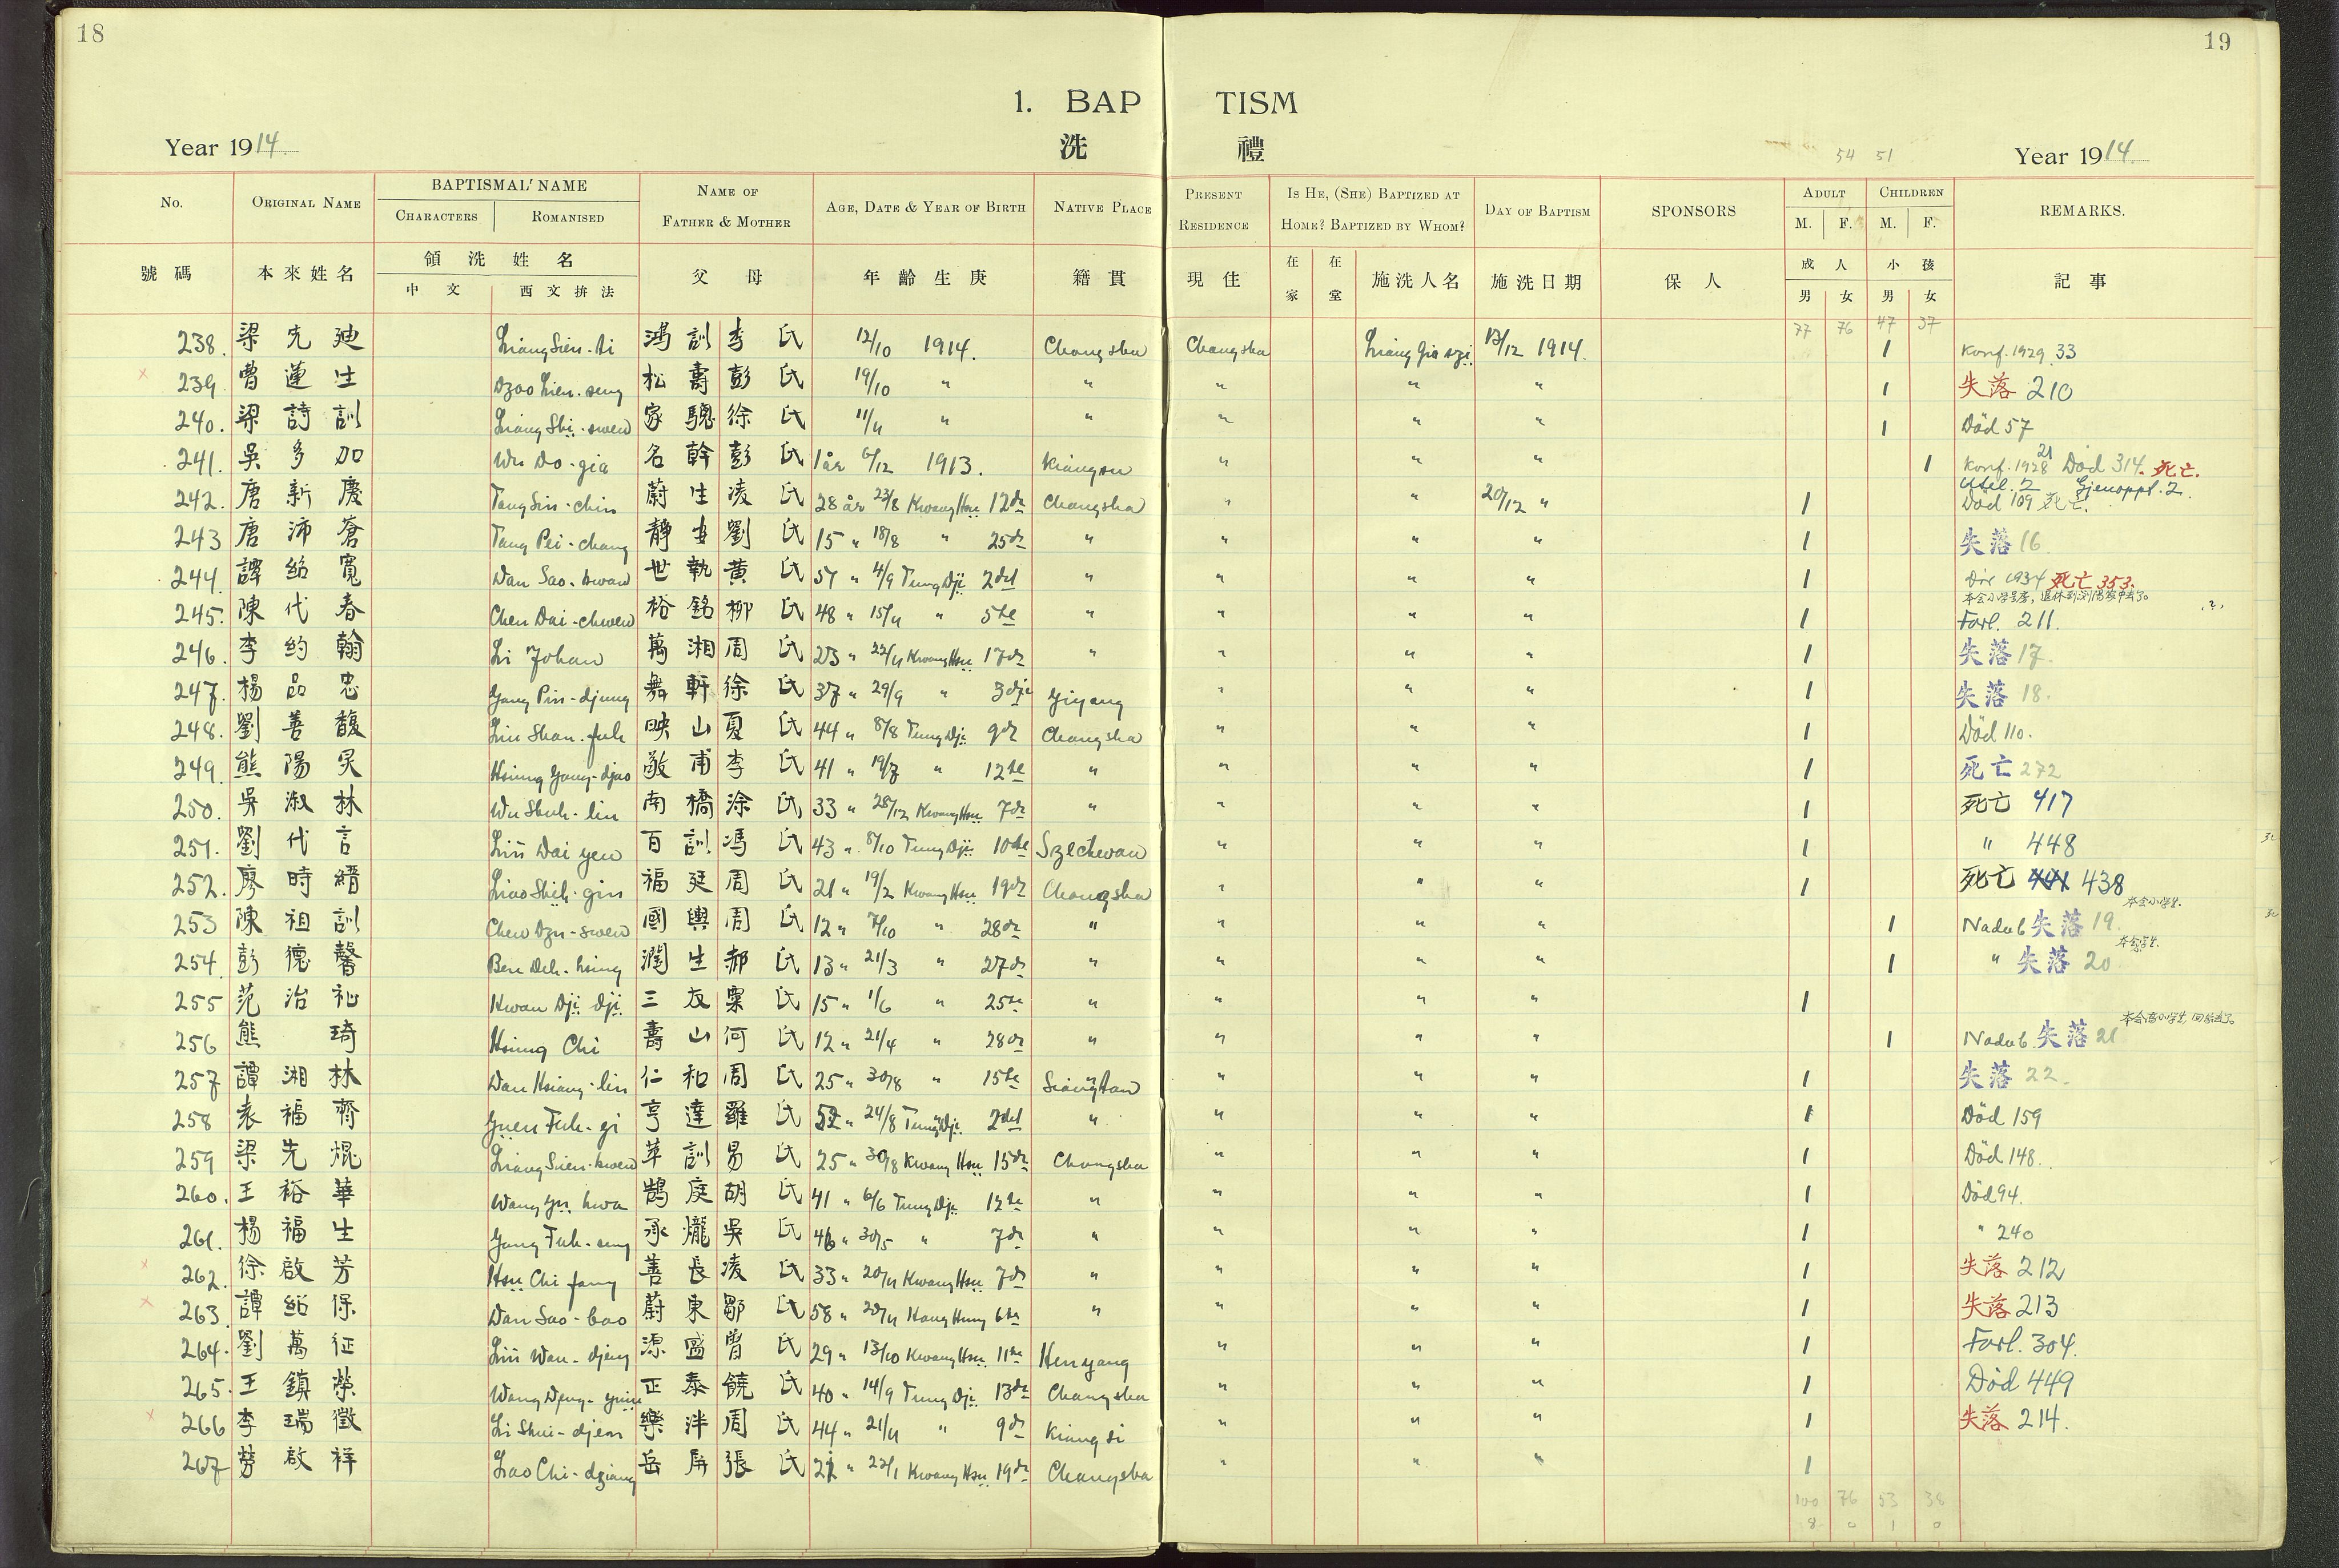 18
19
1. BAPTISM
洗 禮
Year 1914.
54 51
Year 1914.
No. ORIGINAL NAME BAPTISMAL NAME NAME OF FATHER & MOTHER AGE, DATE & YEAR OF BIRTH NATIVE PLACE PRESENT RESIDENCE IS HE, (SHE) BAPTIZED AT HOME? BAPTIZED BY WHOM? DAY OF BAPTISM SPONSORS ADULT CHILDREN REMARKS.
CHARACTERS ROMANISED M. F. M. F.
號碼 本來姓名 領洗姓名 父母 年齡生庚 籍貫 現住 在家 在堂 施洗人名 施洗日期 保人 成人 小孩 記事
中文 西文拚法 男 女 男 女
77 76 47 37
238. 梁先廸 Liang Sien-di 鴻訓 李氏 12/10 1914. Changsha Changsha Liang Gia szi. 13/12 1914. 1 Konf. 1929. 33
239. 曹蓮生 Dzao Lien-seng 松壽 彭氏 19/10 " " " " " 1 失落 210
240. 梁詩訓 Liang Shi-swen 家驄 徐氏 11/11 " " " " " 1 Död 57
241. 吳多加 Wu Do-gia 名幹 彭氏 1 år 6/12 1913. Kiangsu " " " 1 Konf. 1928 21 Död 314. 死亡.
242. 唐新慶 Tang Sin-chin 蔚生 凌氏 28 år 23/8 Kwang Hsu 12de Changsha " " 20/12 " 1 Utel. 2 Gjenoppt. 2. Död 109 死亡.
243 唐沛蒼 Tang Pei-chang 靜安 劉氏 15 " 18/8 " 25de " " " " 1 失落 16
244. 譚紹寬 Dan Sao-kwan 世執 黃氏 51 " 4/9 Tung Dji 2det " " " " 1 1934 死亡 353.
245. 陳代春 Chen Dai-chwen 裕銘 柳氏 48 " 15/11 " 5te " " " " 1 Forl. 211.
246. 李約翰 Li Johan 萬湘 周氏 23 " 22/11 Kwang Hsu 17de " " " " 1 失落 17.
247. 楊品忠 Yang Pin-djung 舞軒 徐氏 37 " 29/9 " 3dje Yiyang " " " 1 失落 18.
248. 劉善馥 Liu Shan-fuh 映山 夏氏 44 " 8/8 Tung Dji 9de Changsha " " " 1 Död 110.
249. 熊陽炅 Hsiung Yang-djao 敬甫 李氏 41 " 19/7 " 12te " " " " 1 死亡 272
250. 吳淑林 Wu Shuh-lin 南橋 涂氏 33 " 28/12 Kwang Hsu 7de " " " " 1 死亡 417
251. 劉代言 Liu Dai yen 百訓 馮氏 43 " 8/10 Tung Dji 10de Szechwan " " " 1 " 448
252. 廖時縉 Liao Shih-gin 福廷 周氏 21 " 19/2 Kwang Hsu 19de Changsha " " " 1 死亡 438
253 陳祖訓 Chen Dzu-swen 國興 周氏 12 " 7/10 " 28de " " " " 1 Nadub 失落 19. 本会小学生.
254. 彭德馨 Ben Deh-hsing 潤生 郝氏 13 " 21/3 " 27de " " " " 1 " 失落 20 本会学生.
255 范治祉 Hwan Dji dji 三友 粟氏 15 " 1/6 " 25te " " " " 1
256 熊琦 Hsiung Chi 壽山 何氏 12 " 21/4 " 28de " " " " 1 Nadub. 失落 21
257 譚湘林 Dan Hsiang-lin 仁和 周氏 25 " 30/8 " 15te Siangtan " " " 1 失落 22.
258 袁福齊 Yuen Fuh-gi 亨達 羅氏 52 " 24/8 Tung Dji 2det " " " " 1 Död 159
259 梁先焜 Liang Sien-kwen 華訓 易氏 25 " 30/8 Kwang Hsu 15de Changsha " " " 1 Död 148.
260. 王裕華 Wang Yu hwa 鵠庭 胡氏 41 " 6/6 Tung Dji 12te " " " " 1 Död 94.
261. 楊福生 Yang Fuh-seng 承爖 吳氏 46 " 30/5 " 7de " " " " 1 " 240
262. 徐啟芳 Hsu Chi fang 善長 凌氏 33 " 20/11 Kwang Hsu 7de " " " " 1 失落 212
263. 譚紹保 Dan Sao-bao 蔚東 鄒氏 58 " 20/11 Hang Hung 6te " " " " 1 失落 213
264. 劉萬征 Liu Wan-djeng 源盛 曾氏 29 " 13/10 Kwang Hsu 11te Henyang " " " 1 Forl. 304.
265. 王鎮榮 Wang Djeng-yuin 正泰 饒氏 40 " 14/9 Tung Dji 13de Changsha " " " 1 Död 449
266 李瑞徵 Li Shui-djen 樂泮 周氏 44 " 21/11 " 9de Kiangsi " " " 1 失落 214.
267 勞啟祥 Lao Chi-dziang 岳屏 張氏 21 " 22/1 Kwang Hsu 19de Changsha " " " 1
100 76 53 38
8 0 1 0